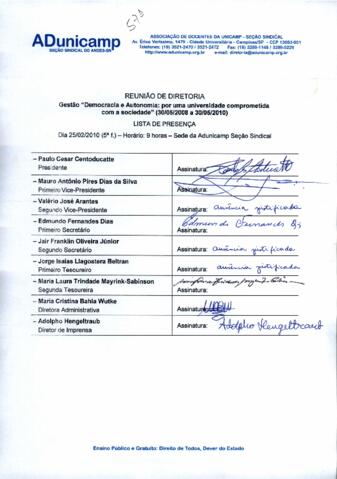 573
ADunicamp
SEÇÃO SINDICAL DO ANDES-SN
ASSOCIAÇÃO DE DOCENTES DA UNICAMP - SEÇÃO SINDICAL
Av. Érico Veríssimo, 1479 - Cidade Universitária - Campinas/SP - CEP 13083-851
Telefones: (19) 3521-2470 / 3521-2472 Fax: (19) 3289-1148 /
REUNIÃO DE DIRETORIA
Gestão "Democracia e Autonomia: por uma universidade comprometida
com a sociedade" (30/05/2008 a 30/05/2010)
LISTA DE PRESENÇA
Dia 25/02/2010 (5ª f.) – Horário: 9 horas – Sede da Adunicamp Seção Sindical
– Paulo Cesar Centoducatte
Presidente
Assinatura:
– Mauro Antônio Pires Dias da Silva
Primeiro Vice-Presidente
Assinatura:
– Valério José Arantes
Segundo Vice-Presidente
Assinatura: ausência justificada
– Edmundo Fernandes Dias
Primeiro Secretário
Assinatura: Edmundo Fernandes Dias
– Jair Franklin Oliveira Júnior
Segundo Secretário
Assinatura: ausência justificada
– Jorge Isaias Llagostera Beltran
Primeiro Tesoureiro
Assinatura: ausência justificada
– Maria Laura Trindade Mayrink-Sabinson
Segunda Tesoureira
Assinatura:
– Maria Cristina Bahia Wutke
Diretora Administrativa
Assinatura:
– Adolpho Hengeltraub
Diretor de Imprensa
Assinatura: Adolpho Hengeltraub
Ensino Público e Gratuito: Direito de Todos, Dever do Estado